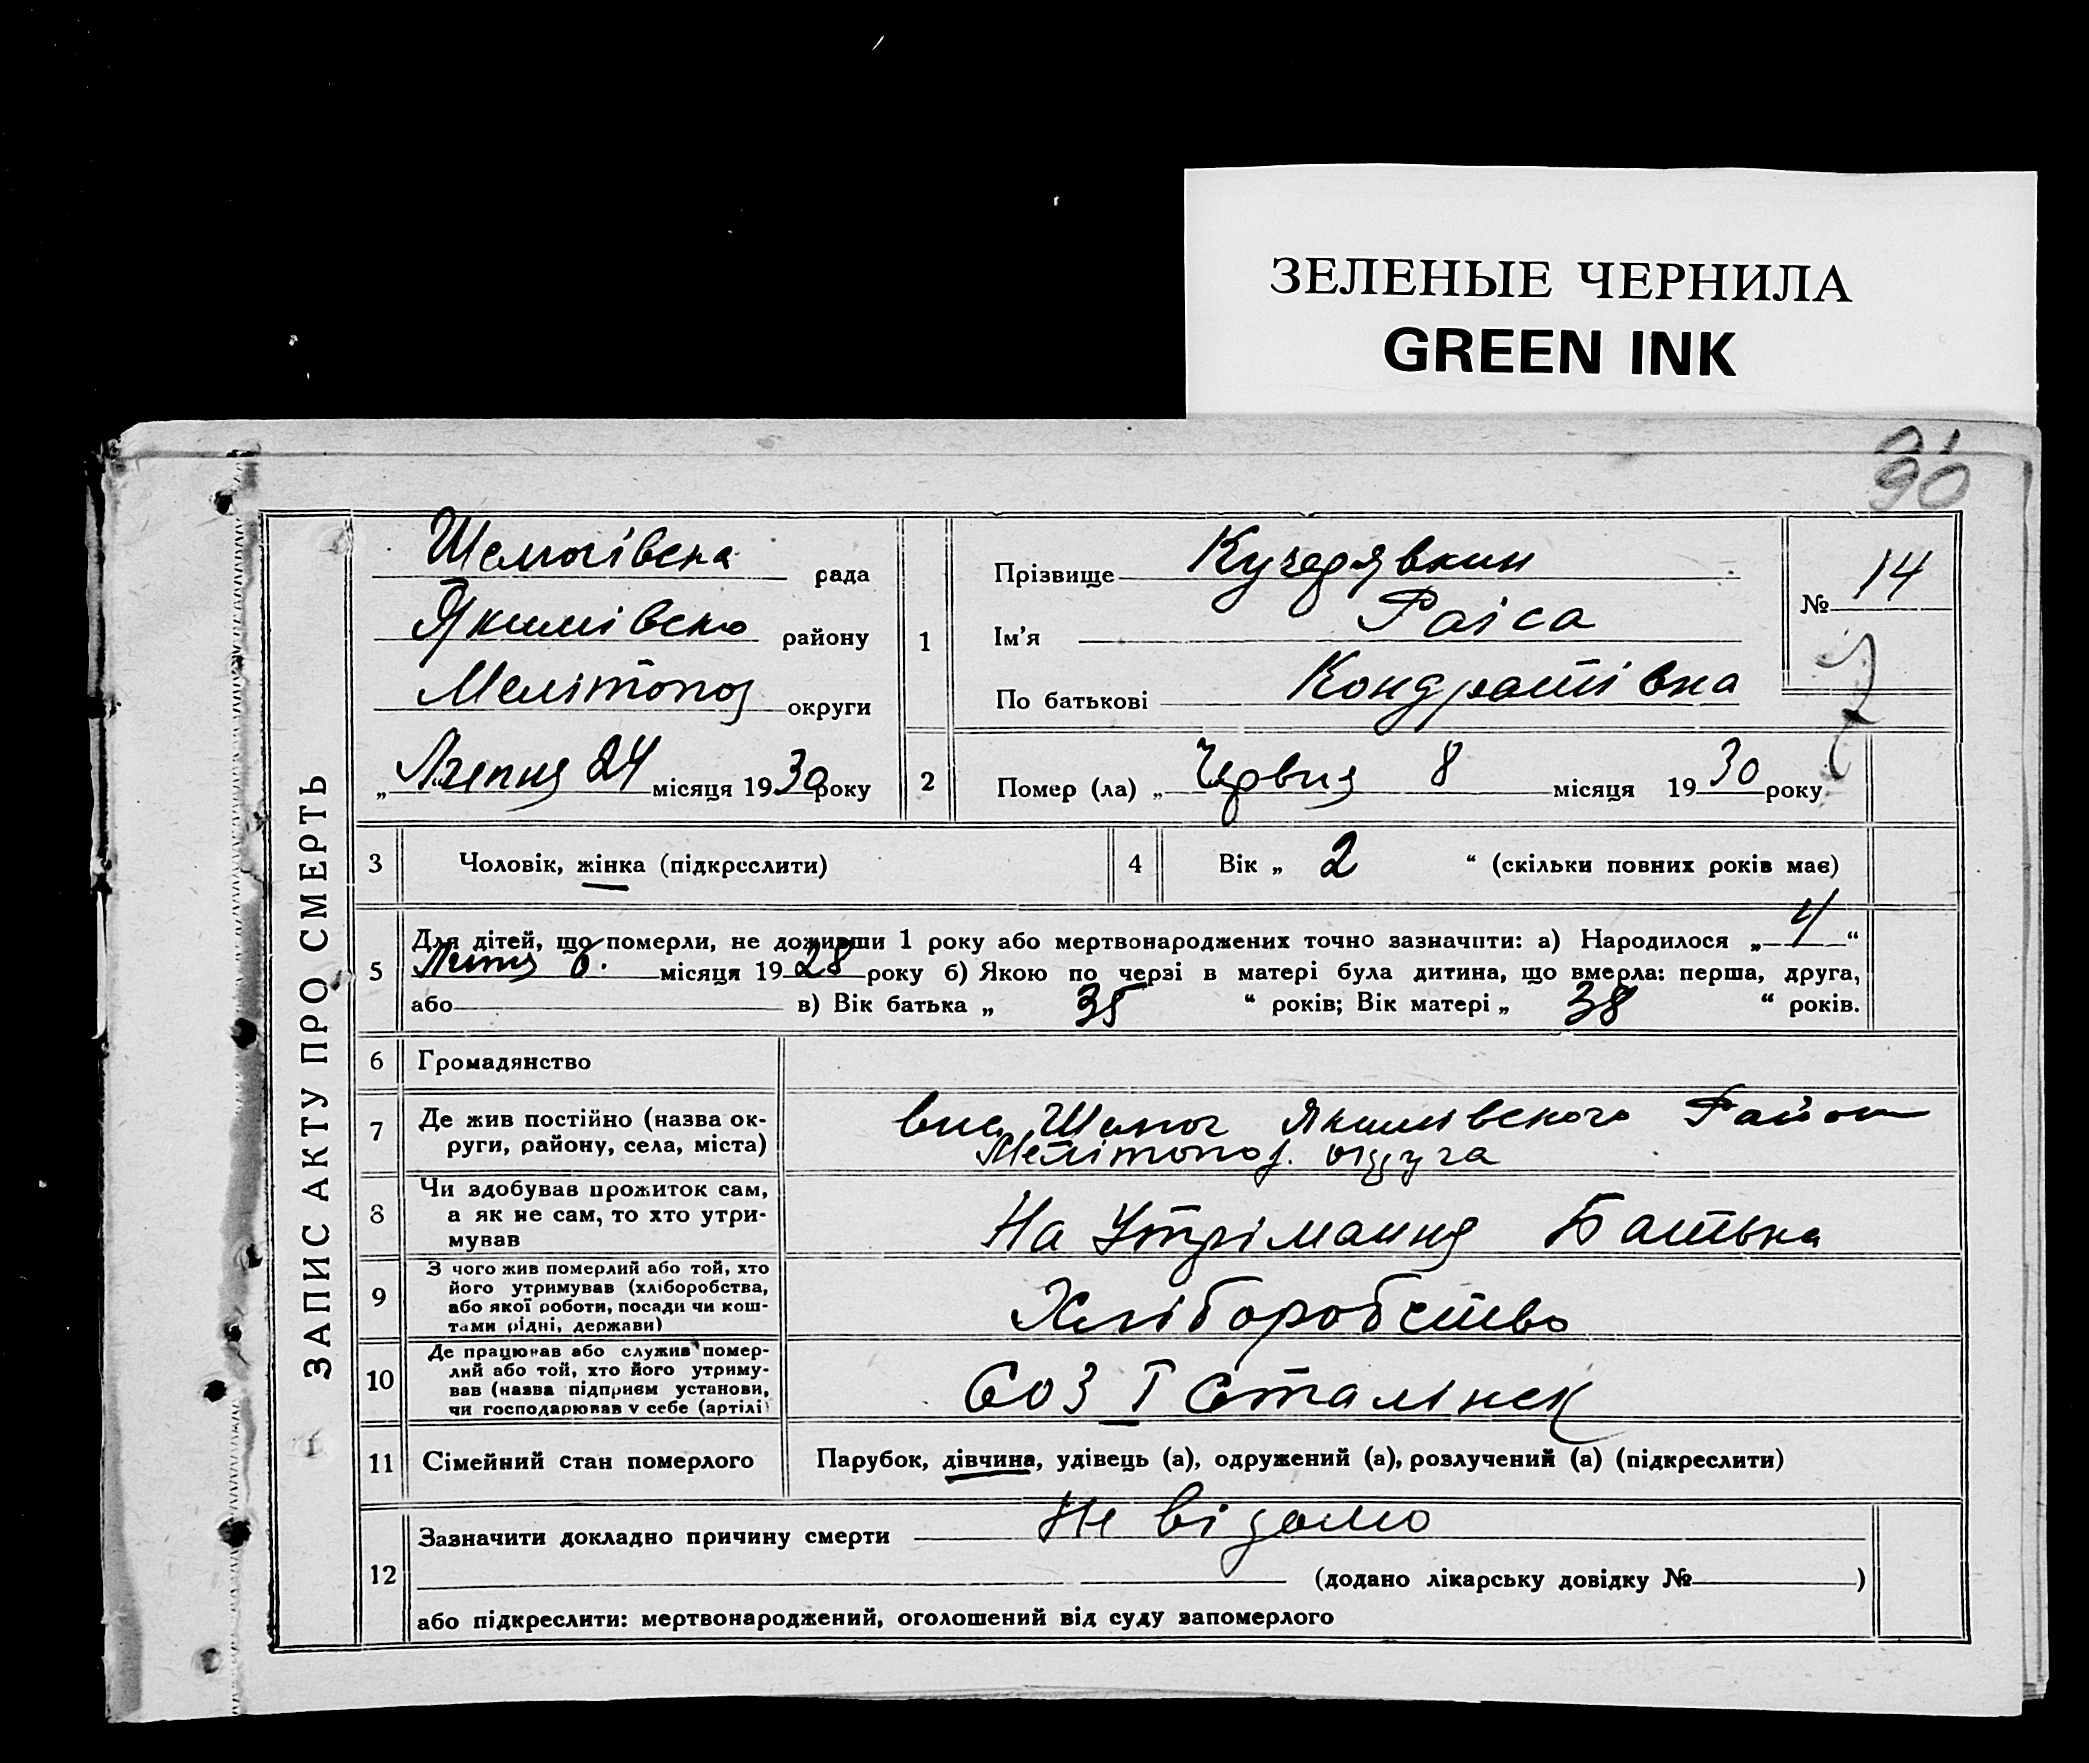 ЗЕЛЕНЫЕ ЧЕРНИЛА
GREEN INK
91
90
ЗАПИС АКТУ ПРО СМЕРТЬ
рада
Якимівськ району
Мелітопол округи
„Липня 24 місяця 1930 року
1
Прізвище Кучерявкин
Ім’я Раіса
По батькові Кондратівна
№ 14
2
Помер (ла) „Червня 8 місяця 1930 року
3 Чоловік, жінка (підкреслити)
4 Вік „ 2 “ (скільки повних років має)
5 Для дітей, що померли, не доживши 1 року або мертвонароджених точно зазначити: а) Народилося „ “
місяця 1928 року б) Якою по черзі в матері була дитина, що вмерла: перша, друга,
або в) Вік батька „ 35 “ років; Вік матері „ 38 “ років.
6 Громадянство
7 Де жив постійно (назва ок-
руги, району, села, міста)
Якимівского Район
Мелітопол. округа
8 Чи здобував прожиток сам,
а як не сам, то хто утри-
мував
На Утрімання Батька
9 З чого жив померлий або той, хто
його утримував (хліборобства,
або якої роботи, посади чи кош-
тами рідні, держави)
Хліборобство
10 Де працював або служив помер-
лий або той, хто його утриму-
вав (назва підприєм установи,
чи господарював у себе (артілі)
СОЗ І Сталінск
11 Сімейний стан померлого
Парубок, дівчина, удівець (а), одружений (а), розлучений (а) (підкреслити)
12 Зазначити докладно причину смерти Не відомо
(додано лікарську довідку № )
або підкреслити: мертвонароджений, оголошений від суду запомерлого